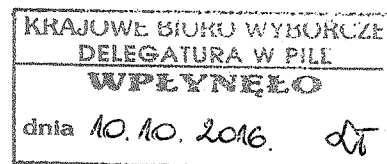 KRAJOWE BIURO WYBORCZE
DELEGATURA W PILE
WPŁYNĘŁO
dnia 10.10.2016.